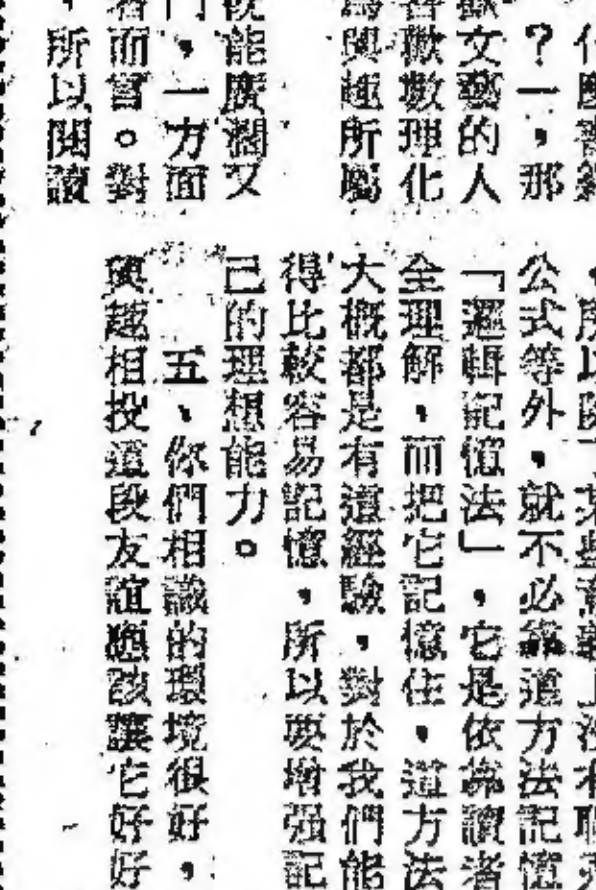 ？一，那
文藝的人
歡數理化
興趣所屬
能廣濶又
，一方面
而言。對
，所以閱讀
公式等外，就不必靠這方法記憶
「邏輯記憶法」，它是依靠讀者
全理解，而把它記憶住，這方法
大概都是有這經驗，對於我們能
得比較容易記憶，所以要增强記
己的理想能力。
五、你們相識的環境很好，
興趣相投這段友誼應該讓它好好